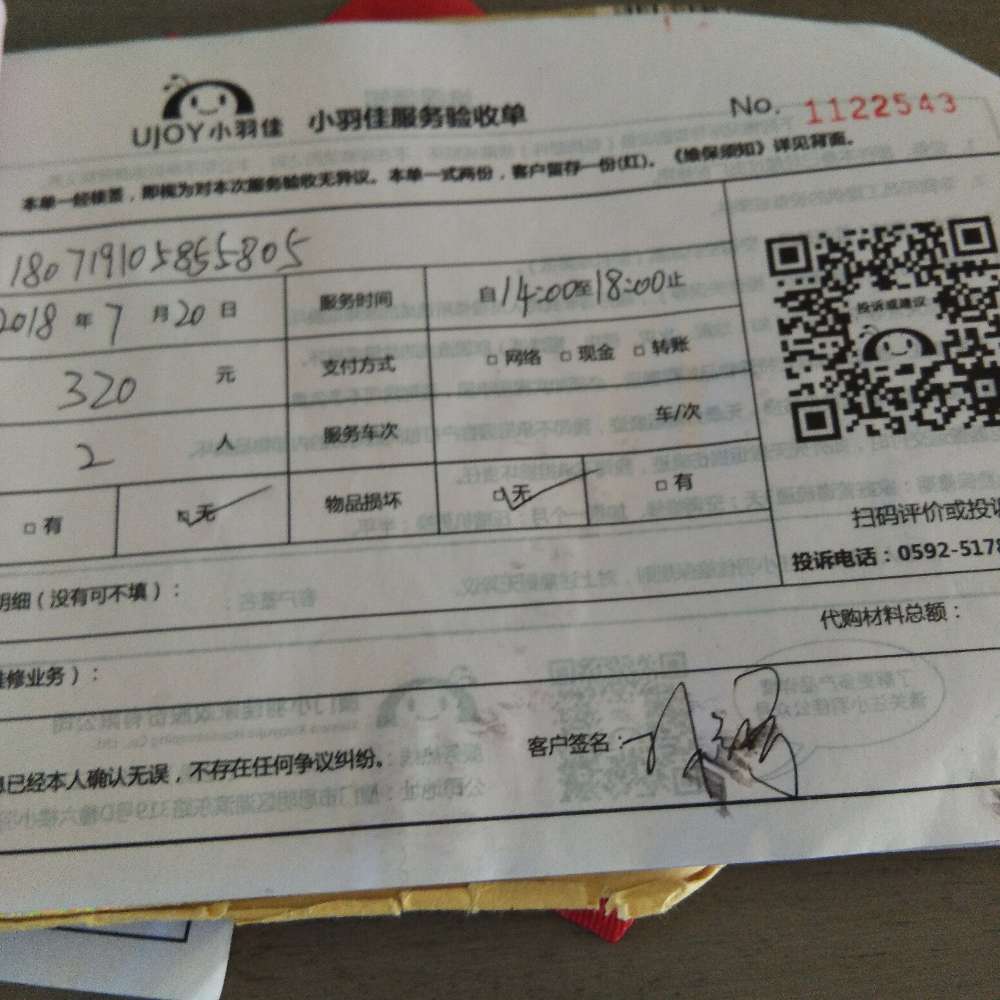 UJOY小羽佳 小羽佳服务验收单 No. 1122543
本单一经接签，即视为对本次服务验收无异议。本单一式两份，客户留存一份(红)。《维保须知》详见背面。
180719105855805
2018 年 7 月 20 日 服务时间 自14:00至18:00止
320 元 支付方式 □ 网络 □ 现金 □ 转账
2 人 服务车次 车/次
□ 有 □ 无 物品损坏 □ 无 □ 有
投诉或建议
扫码评价或投诉
投诉电话：0592-5178
明细（没有可不填）：
代购材料总额：
维修业务）：
客户签名：
息已经本人确认无误，不存在任何争议纠纷。